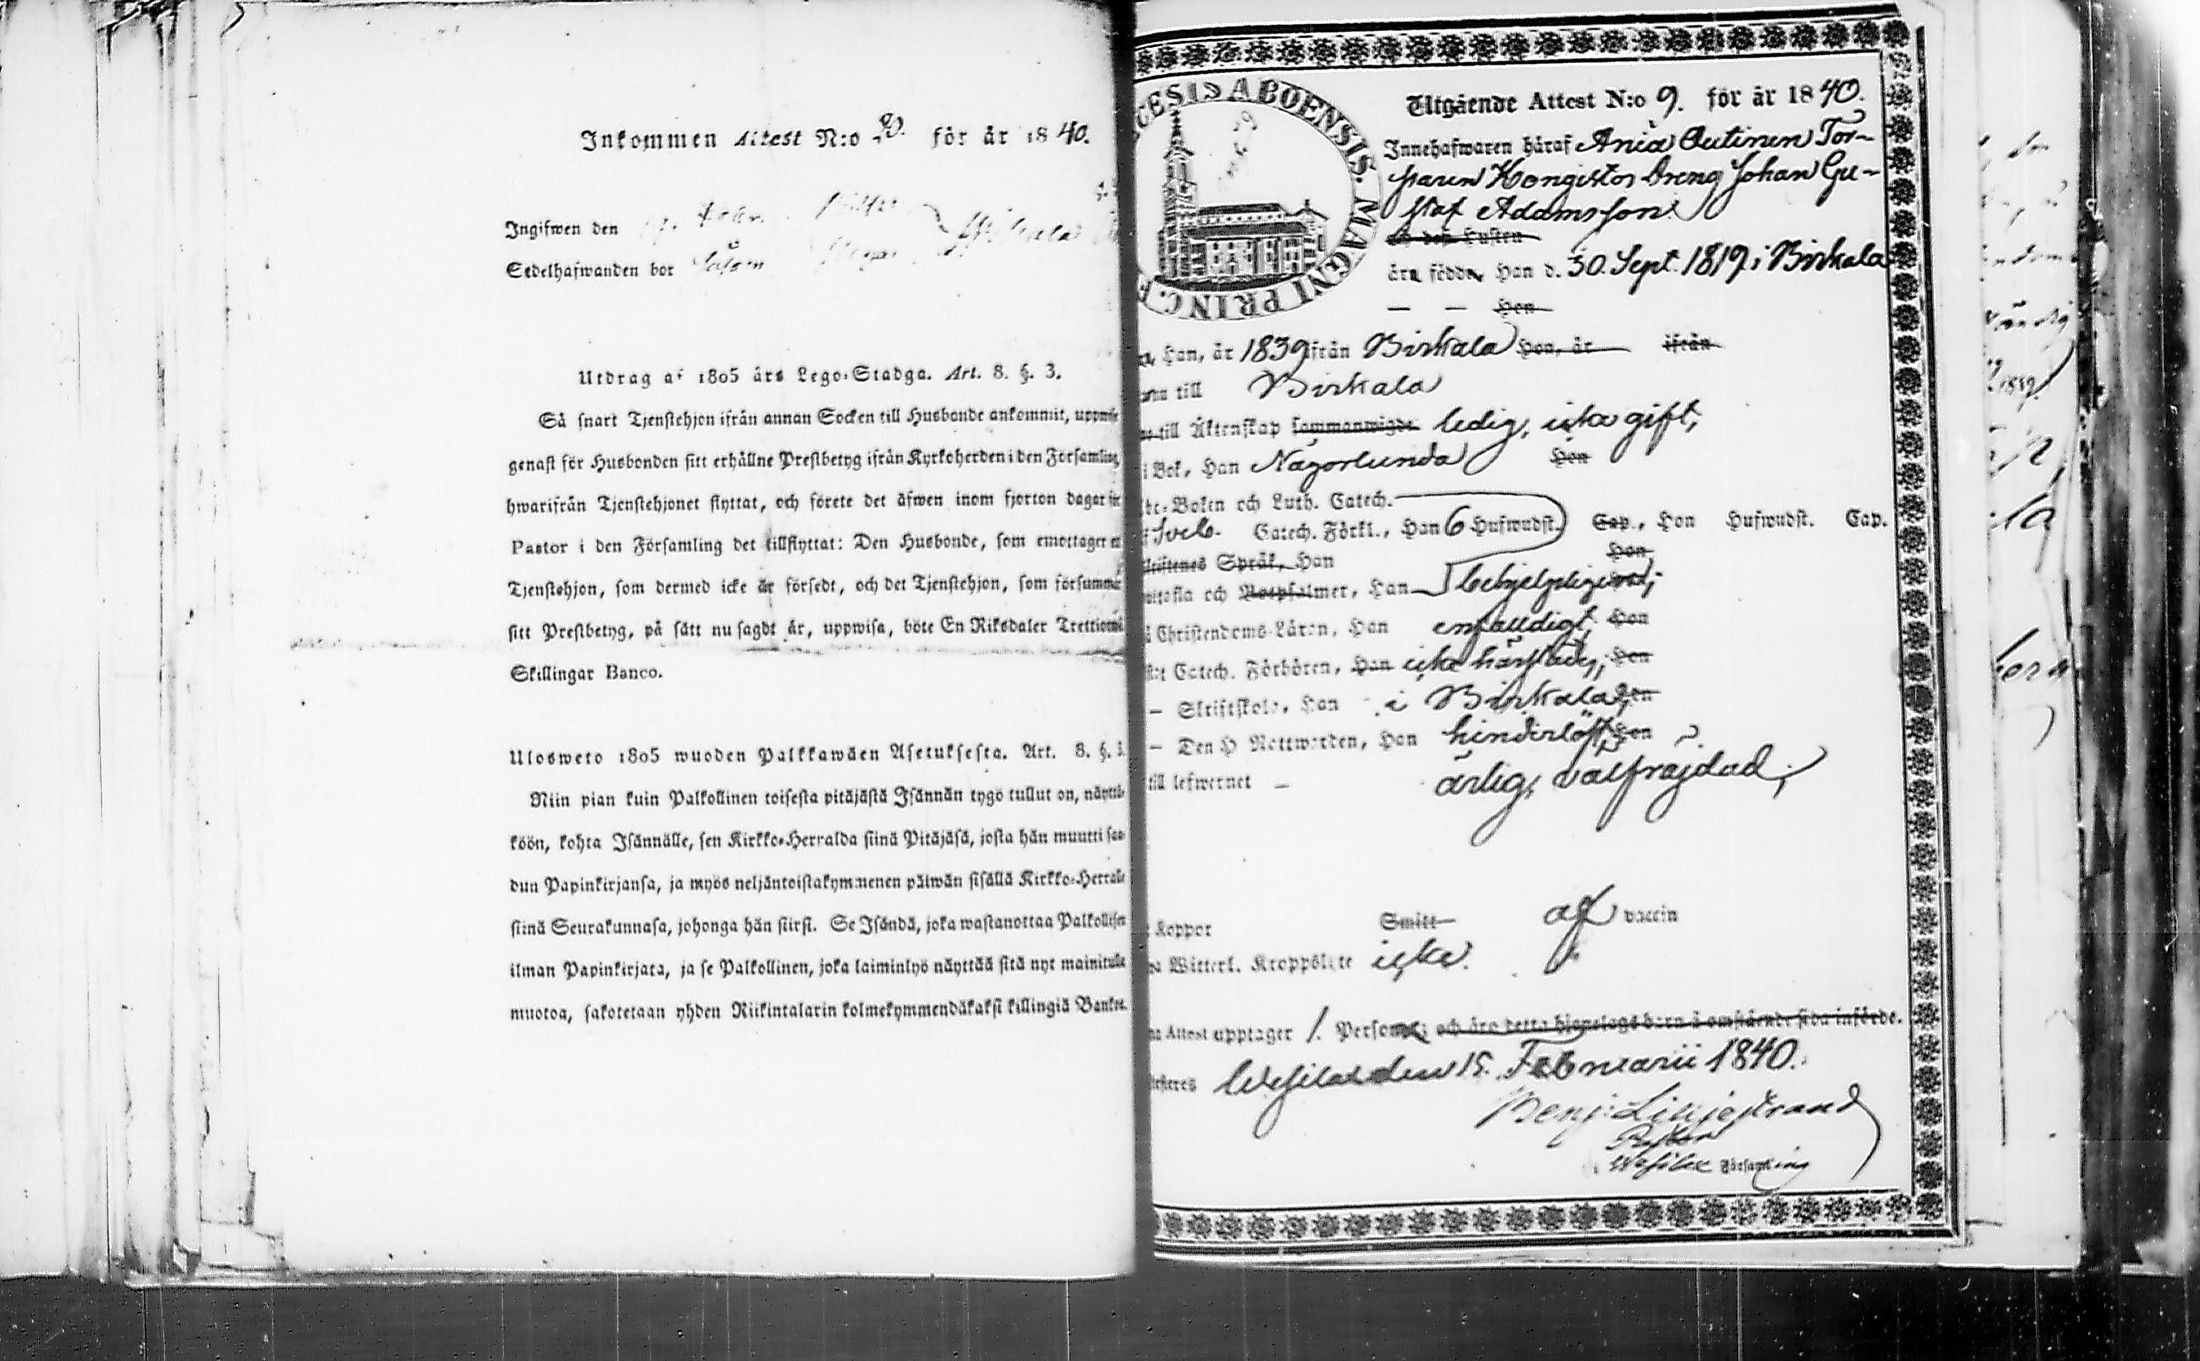 Inkommen Attest N:o för år 1840.
Ingifwen den
Sedelhafwanden bor
Utdrag af 1805 års Lego-Stadga. Art. 8. §. 3.
Så snart Tjenstehjon ifrån annan Socken till Husbonde ankommit, uppwise
genast för Husbonden sitt erhållne Prestbetyg ifrån Kyrkoherden i den Församling,
hwarifrån Tjenstehjonet flyttat, och förete det äfwen inom fjorton dagar för
Pastor i den Församling det tillflyttat: Den Husbonde, som emottager et
Tjenstehjon, som dermed icke är försedt, och det Tjenstehjon, som försummar
sitt Prestbetyg, på sätt nu sagdt är, uppwisa, böte En Riksdaler Trettiotwå
Skillingar Banco.
Ulosweto 1805 wuoden Palkkawäen Asetuksesta. Art. 8. §. 3.
Niin pian kuin Palkollinen toisesta pitäjästä Isännän tygö tullut on, näyttä-
köön, kohta Isännälle, sen Kirkko-Herralda siinä Pitäjäsä, josta hän muutti saa-
dun Papinkirjansa, ja myös neljäntoistakymmenen päiwän sisällä Kirkko-Herralle
siinä Seurakunnasa, johonga hän siirsi. Se Isändä, joka wastanottaa Palkollisen
ilman Papinkirjata, ja se Palkollinen, joka laiminlyö näyttää sitä nyt mainitulla
muotoa, sakotetaan yhden Riikintalarin kolmekymmendäkaksi killingiä Bankos.
CESIS ABOENSIS. MAGNI PRINC. F
Utgående Attest N:o 9. för år 1840.
Innehafwaren häraf Ania Outinen Tor-
paren Kongistos Dreng Johan Gu-
staf Adamsson
och des Hustru
äro födde, Han d. 30. Sept. 1819. i Birkala
— — Hon
Han, år 1839 från Birkala Hon, år ifrån
till Birkala
till Äktenskap sammanwigde ledig, icke gift,
i Bok, Han Någorlunda Hon
Boken och Luth. Catech.
Catech. Förkl., Han 6 Hufwudst. Cap., Hon Hufwudst. Cap.
Skriftenes Språk, Han Hon
och Botpsalmer, Han behjelpligen;
Christendoms-Läran, Han enfaldigt, Hon
Catech. Förhören, Han icke Hon
— Skriftskola, Han i Birkala, Hon
— Den H Nattwarden, Han hinderlöst, Hon
till lefwernet — ärlig, välfräjdad;
Koppor Smitt af vaccin
Witterl. Kroppslyte icke.
Attest upptager 1. Person; och äro detta hjonelags barn å omstående sida införde.
Wesilax den 15. Februarii 1840.
Benj: Liljestrand
Pastor
i Wesilax Församling